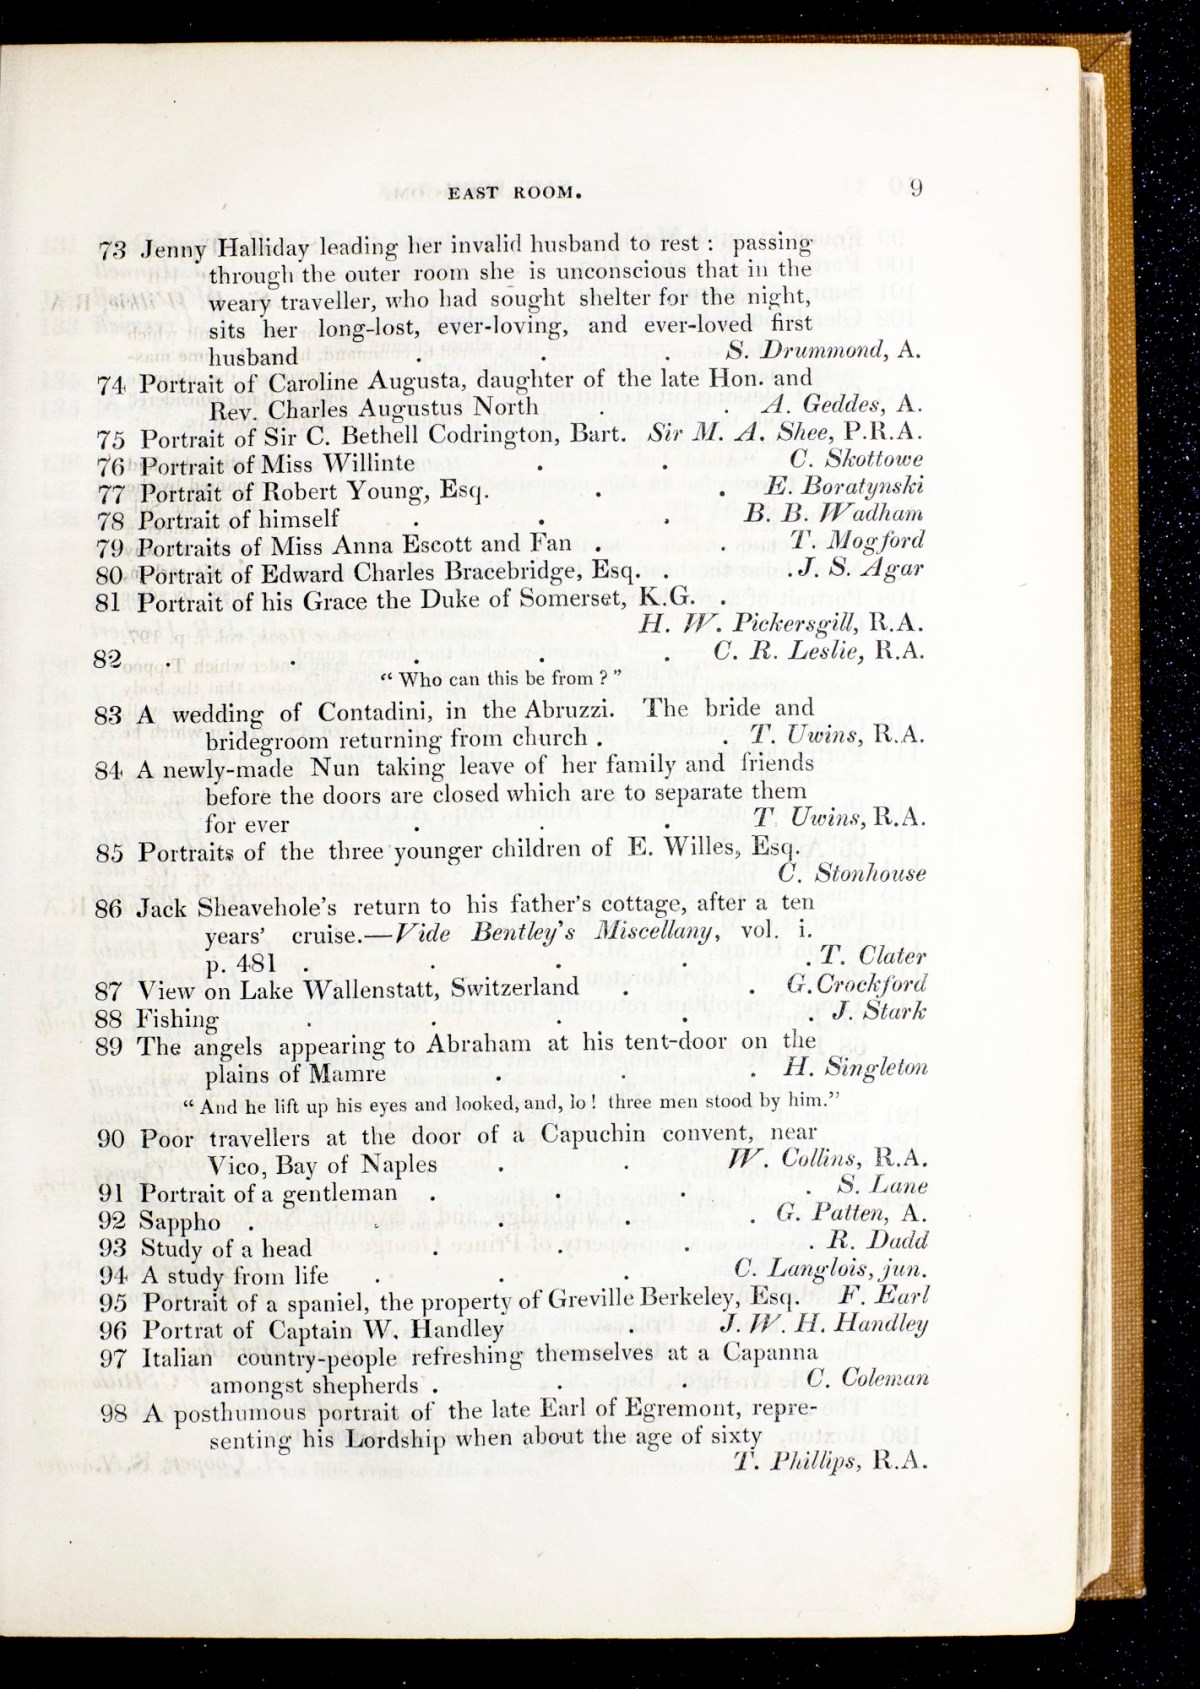 EAST ROOM. 9
73 Jenny Halliday leading her invalid husband to rest : passing
through the outer room she is unconscious that in the
weary traveller, who had sought shelter for the night,
sits her long-lost, ever-loving, and ever-loved first
husband . . . S. Drummond, A.
74 Portrait of Caroline Augusta, daughter of the late Hon. and
Rev. Charles Augustus North . . A. Geddes, A.
75 Portrait of Sir C. Bethell Codrington, Bart. Sir M. A. Shee, P.R.A.
76 Portrait of Miss Willinte . . C. Skottowe
77 Portrait of Robert Young, Esq. . . E. Boratynski
78 Portrait of himself . . . B. B. Wadham
79 Portraits of Miss Anna Escott and Fan . . T. Mogford
80 Portrait of Edward Charles Bracebridge, Esq. . . J. S. Agar
81 Portrait of his Grace the Duke of Somerset, K.G. .
H. W. Pickersgill, R.A.
82 . . . . . C. R. Leslie, R.A.
“ Who can this be from ? ”
83 A wedding of Contadini, in the Abruzzi. The bride and
bridegroom returning from church . . T. Uwins, R.A.
84 A newly-made Nun taking leave of her family and friends
before the doors are closed which are to separate them
for ever . . . T. Uwins, R.A.
85 Portraits of the three younger children of E. Willes, Esq.
C. Stonhouse
86 Jack Sheavehole’s return to his father’s cottage, after a ten
years’ cruise.—Vide Bentley’s Miscellany, vol. i.
p. 481 . . . . . T. Clater
87 View on Lake Wallenstatt, Switzerland . . G. Crockford
88 Fishing . . . . . J. Stark
89 The angels appearing to Abraham at his tent-door on the
plains of Mamre . . . H. Singleton
“ And he lift up his eyes and looked, and, lo ! three men stood by him.”
90 Poor travellers at the door of a Capuchin convent, near
Vico, Bay of Naples . . W. Collins, R.A.
91 Portrait of a gentleman . . . . S. Lane
92 Sappho . . . . . G. Patten, A.
93 Study of a head . . . . R. Dadd
94 A study from life . . . C. Langlois, jun.
95 Portrait of a spaniel, the property of Greville Berkeley, Esq. F. Earl
96 Portrat of Captain W. Handley . J. W. H. Handley
97 Italian country-people refreshing themselves at a Capanna
amongst shepherds . . . C. Coleman
98 A posthumous portrait of the late Earl of Egremont, repre-
senting his Lordship when about the age of sixty
T. Phillips, R.A.